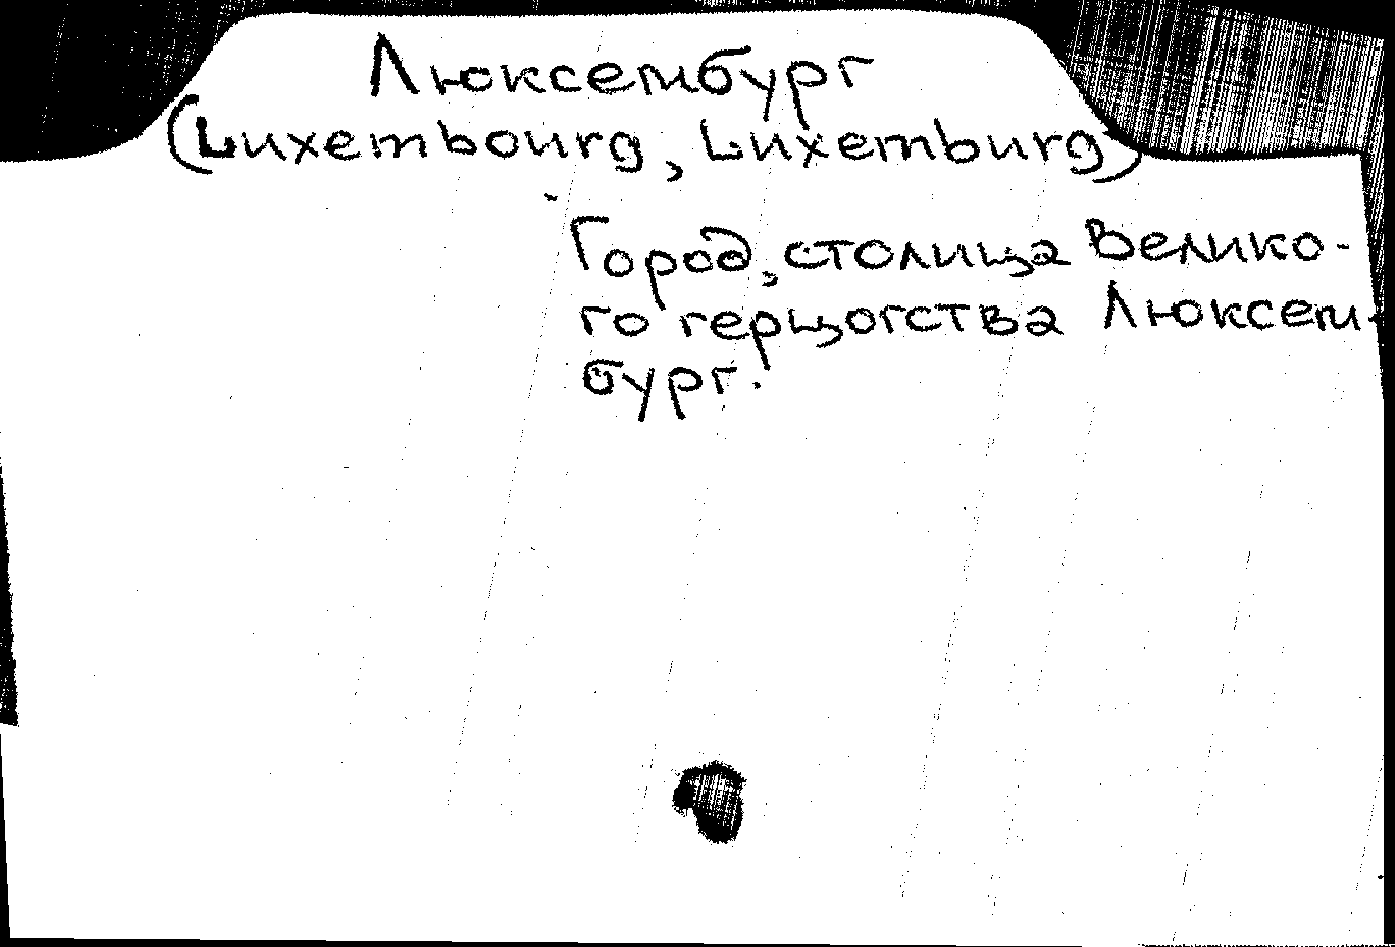 Люксембург
(Luxembourg, Luxemburg)
Город, столица Велико-
го герцогства Люксем-
бург.